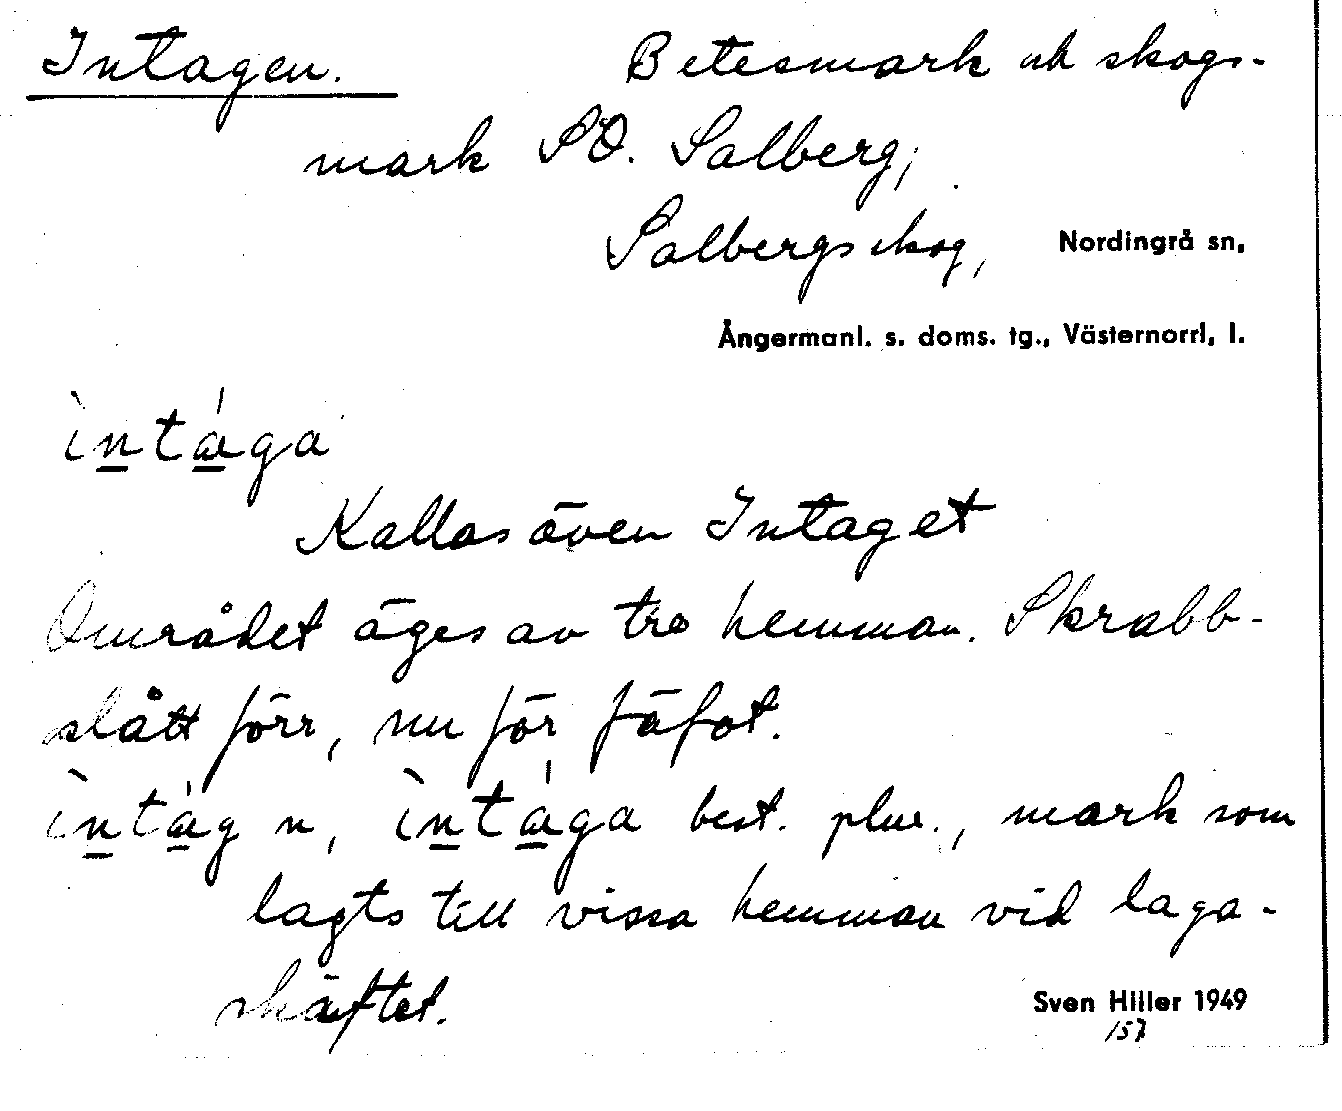 Intagen. Betesmark och skogs-
mark SO. Salberg,
Salbergs skog, Nordingrå sn,
Ångermanl. s. doms. tg., Västernorrl, l.
ìntága
Kallas även Intaget
Området äges av tre hemman. Skrabb-
slått förr, nu för fäfot.
ìntág n, ìntága best. plur., mark som
lagts till vissa hemman vid laga-
skiftet.
Sven Hiller 1949
157